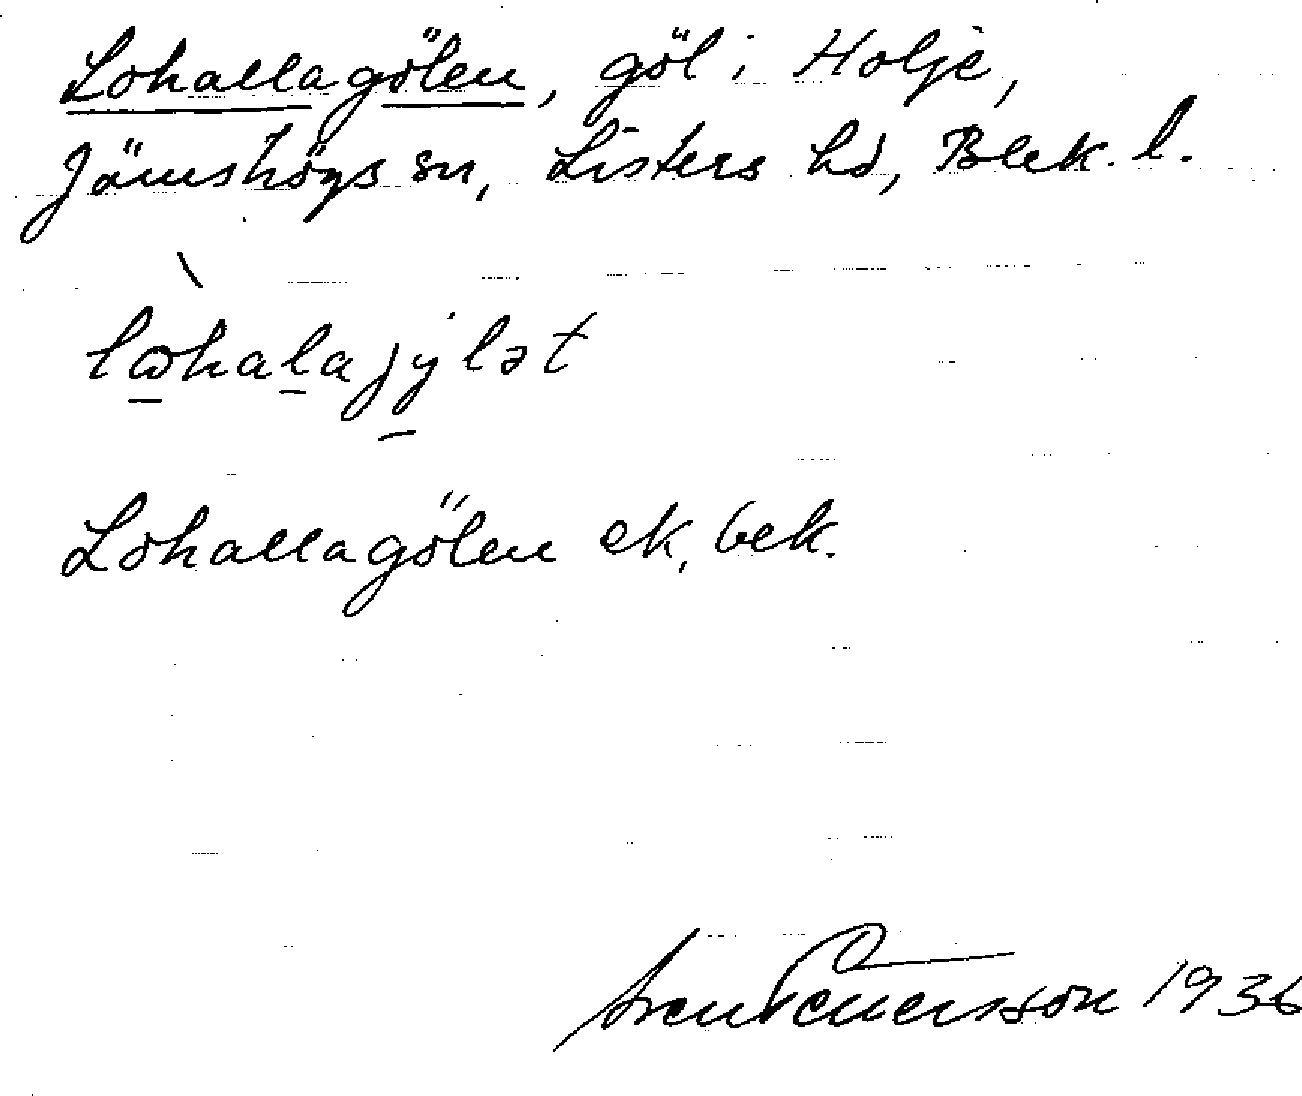 Lohallagölen, göl i Holje,
Jämshögs sn, Listers hd, Blek. l.
lωhalajyl​ət
Lohallagölen ek, bek.
1936